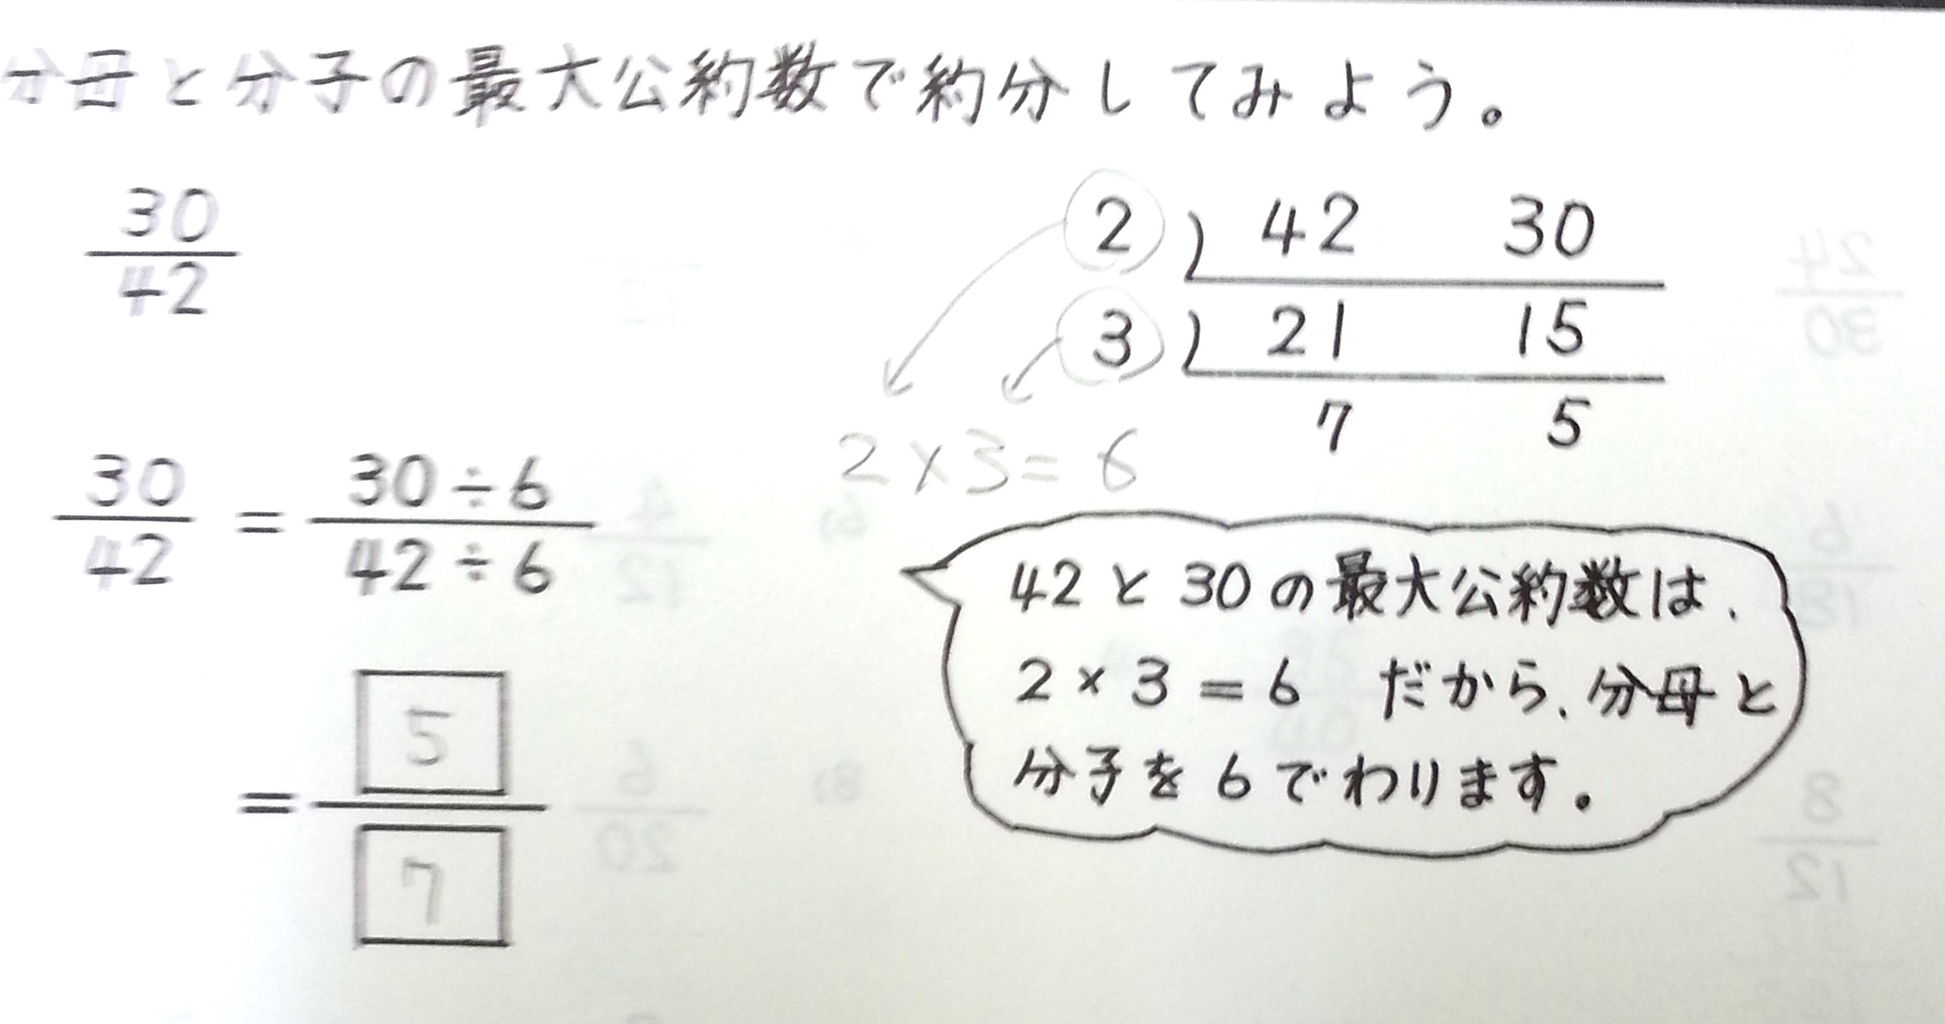 分母と分子の最大公約数で約分してみよう。
30
42
2 ) 42 30
3 ) 21 15
7 5
2×3=6
30/42 = 30÷6/42÷6
= 5/7
42と30の最大公約数は、
2×3=6 だから、分母と
分子を6でわります。